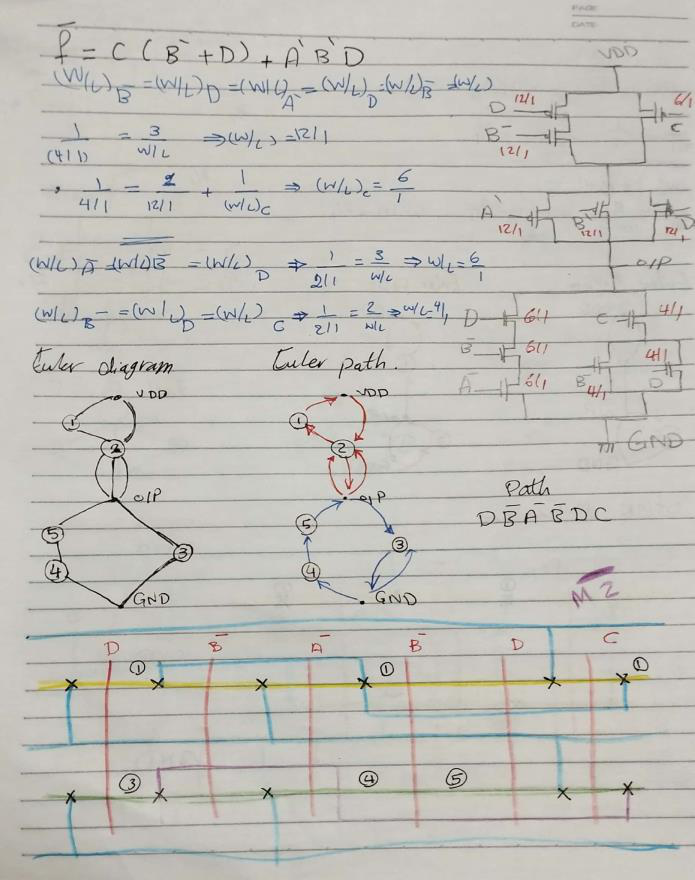 PAGE
DATE
f̄ = C ( B̄ + D ) + A` B` D
(W/L)B̄ = (W/L)D = (W/L)A` = (W/L)D = (W/L)B̄ = (W/L)
1/(4/1) = 3/(W/L) ⇒ (W/L) = 12/1
1/(4/1) = 2/(12/1) + 1/(W/L)C ⇒ (W/L)C = 6/1
(W/L)Ā = (W/L)B̄ = (W/L)D ⇒ 1/(2/1) = 3/(W/L) ⇒ W/L = 6/1
(W/L)B̄ = (W/L)D = (W/L)C ⇒ 1/(2/1) = 2/(W/L) ⇒ W/L = 4/1
VDD
D 12/1
6/1 C
B̄ 12/1
A` 12/1
B` 12/1
12/1 D
O/P
D 6/1
C 4/1
B̄ 6/1
Ā 6/1
B̄ 4/1
4/1 D
GND
Euler diagram
Euler path.
VDD
1
2
O/P
5
4
3
GND
VDD
1
2
O/P
5
4
3
GND
Path
D B̄ Ā B̄ D C
M2
D B̄ Ā B̄ D C
① ① ①
③ ④ ⑤